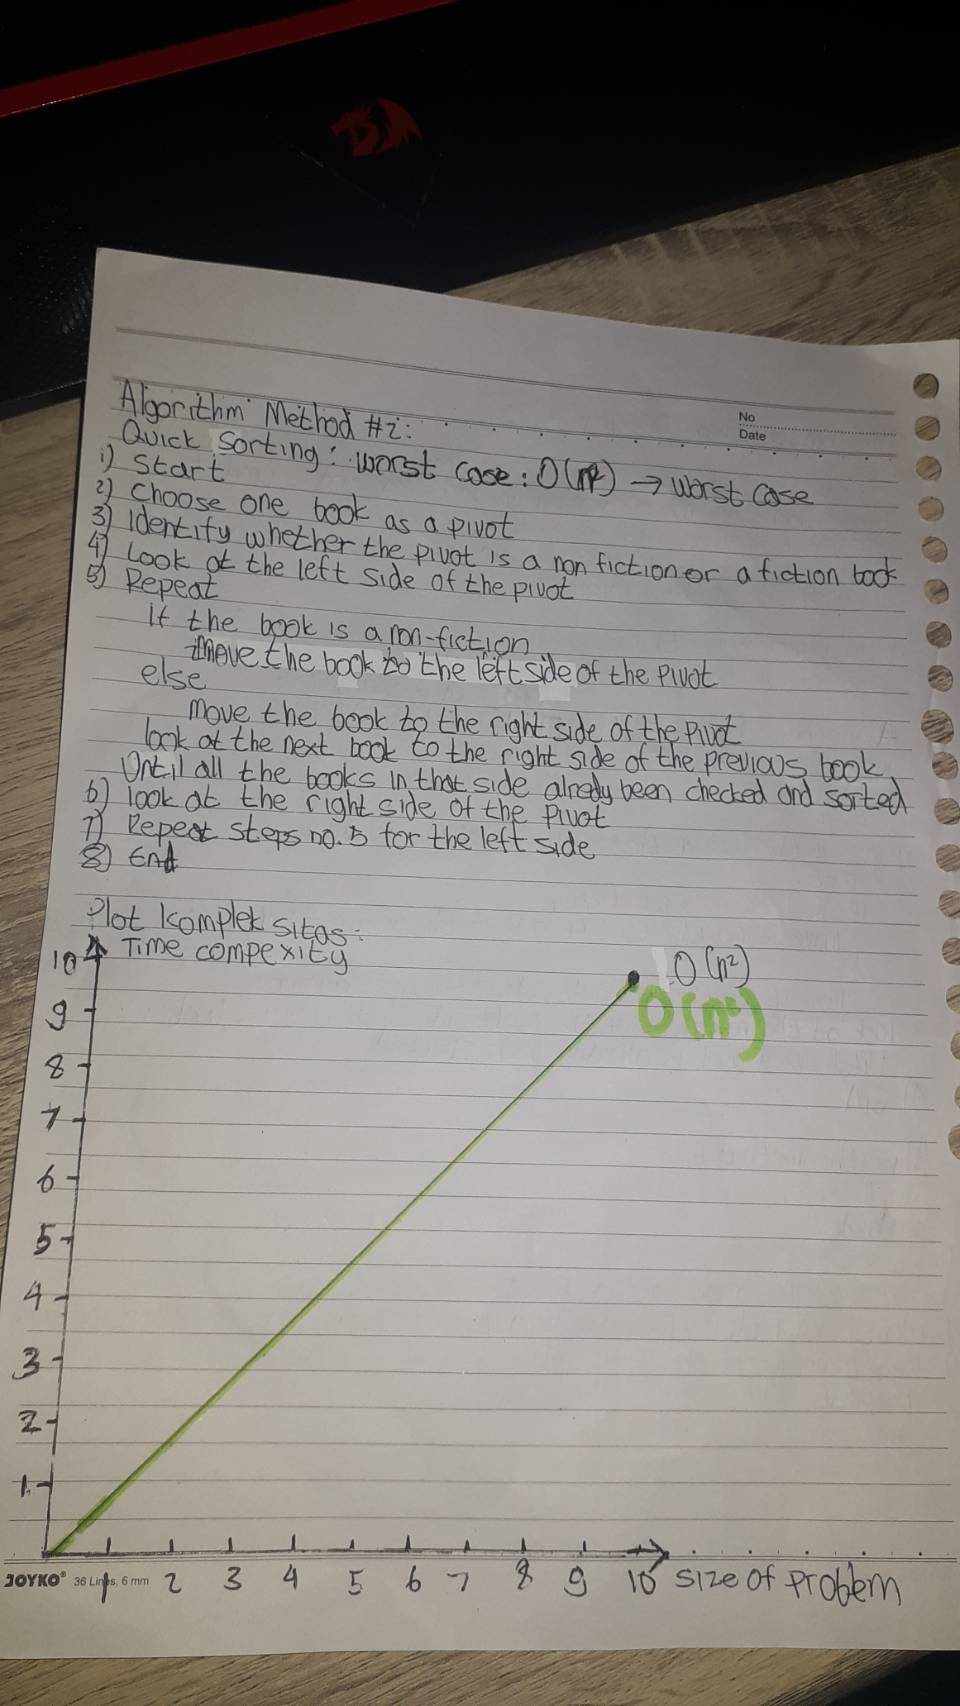 No
Date
Algorithm Method #2:
Quick Sorting: worst case: O(n²) → worst case
1) Start
2) Choose one book as a pivot
3) Identify whether the pivot is a non fiction or a fiction book
4) Look at the left side of the pivot
5) Repeat
If the book is a non-fiction
move the book to the left side of the pivot
else
move the book to the right side of the pivot
look at the next book to the right side of the previous book
Until all the books in that side alredy been checked and sorted
6) look at the right side of the pivot
7) Repeat steps no. 5 for the left side
8) End
Plot komplek sitas:
Time compexity
10
O(n²)
O(n²)
9
8
7
6
5
4
3
2
1
1 2 3 4 5 6 7 8 9 10 size of problem
JOYKO® 36 Lines, 6 mm